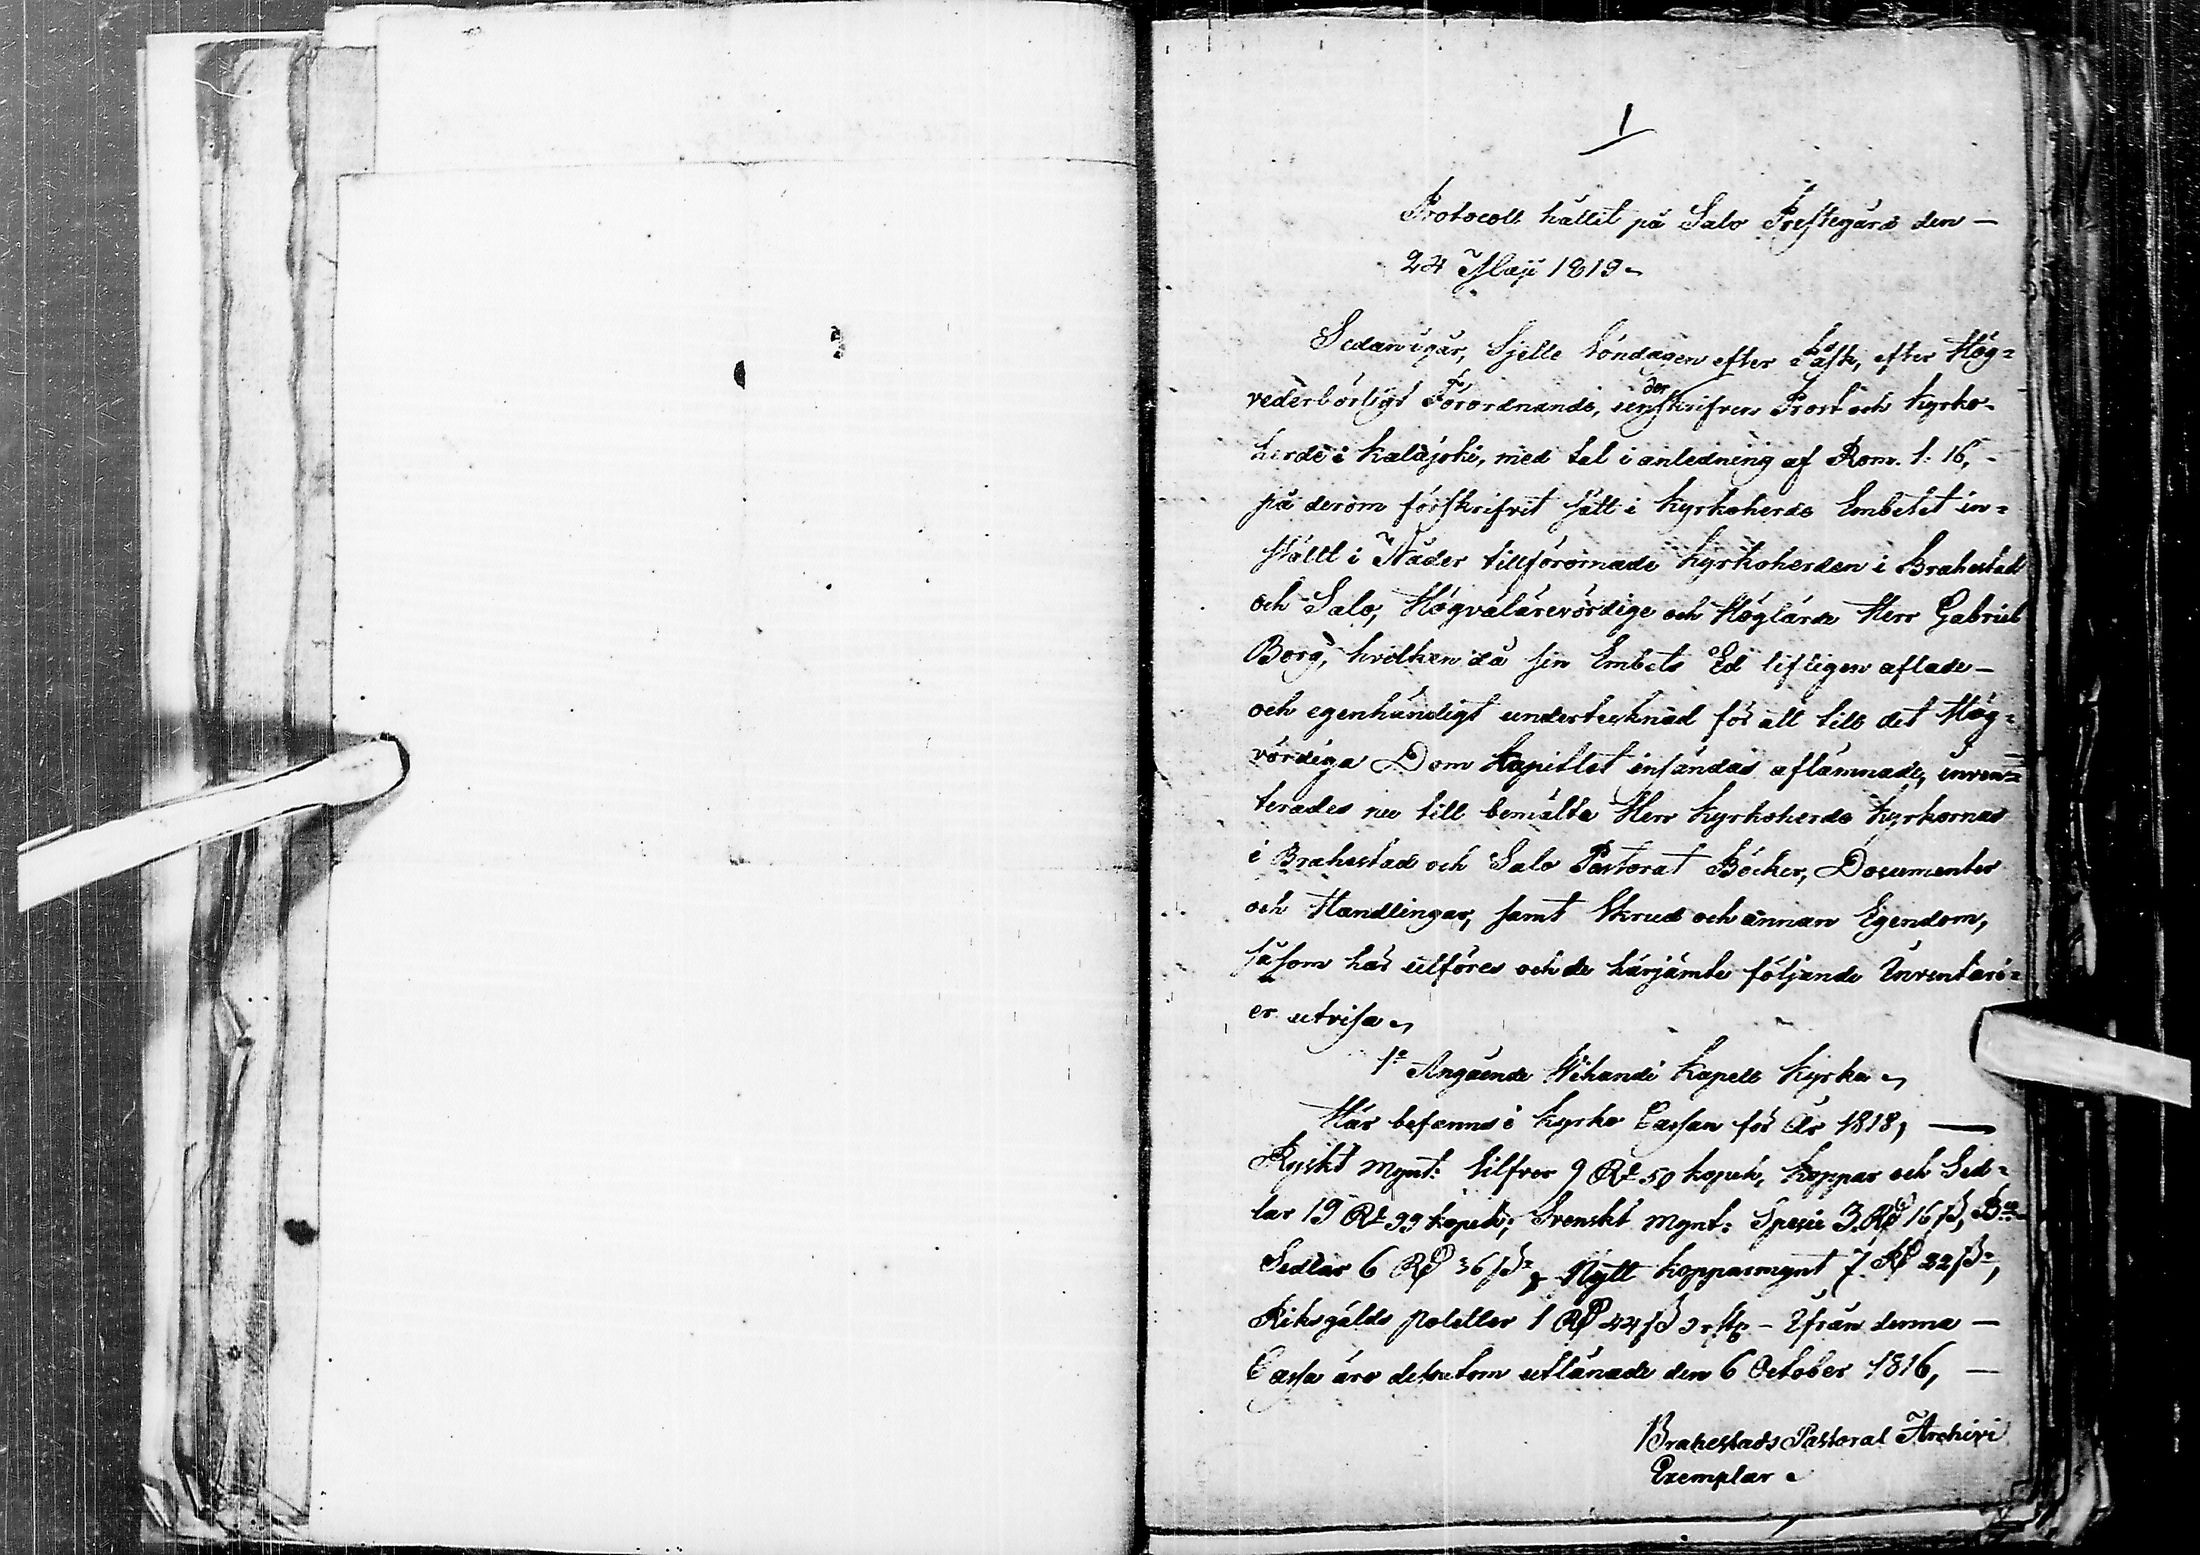 1
Protocoll hållit på Salo Prestegård den —
24 Maji 1819.
Sedan igår, Sjette Söndagen efter Påsk, efter Hög=
vederbörligt Förordnande, underskrifven Prost och Kyrko-
herde i Kalajoki, med tal i anledning af Rom. 1: 16, -
på derom förskrifvit sätt i Kyrkoherde Embetet in=
stält i Nåder tillförordnade Kyrkoherden i Brahestad
och Salo, Högvälärevördige och Höglärde Herr Gabriel
Borg, hvilken då sin Embets Ed lifligen aflade —
och egenhändigt undertecknad för att till det Hög=
vördiga Dom Kapitlet insändas aflämnade, inven=
terades nu till bemälte Herr Kyrkoherde Kyrkornas
i Brahestad och Salo Pastorat Böcker, Documenter
och Handlingar, samt Skrud och annan Egendom,
såsom här utföres och de härjämte följande Inventari=
er utvisa.
1º Angående Wihandi Kapell Kyrka.
Här befanns i Kyrko Cassan för År 1818, —
Ryskt mynt: silfver 9 Rb 50 kopek, koppar och Sed=
lar 19 Rb 99 kopek; Svenskt mynt: Specie 3 Rd 16 s, Bco
Sedlar 6 Rd 36 s, Nytt kopparmynt 7 Rd 22 s,
Riksgälds poletter 1 Rd 44 s 3 rst — Ifrån denna —
Cassa äro dessutom utlånade den 6 October 1816, —
Brahestads Pastorat Archivi
Exemplar